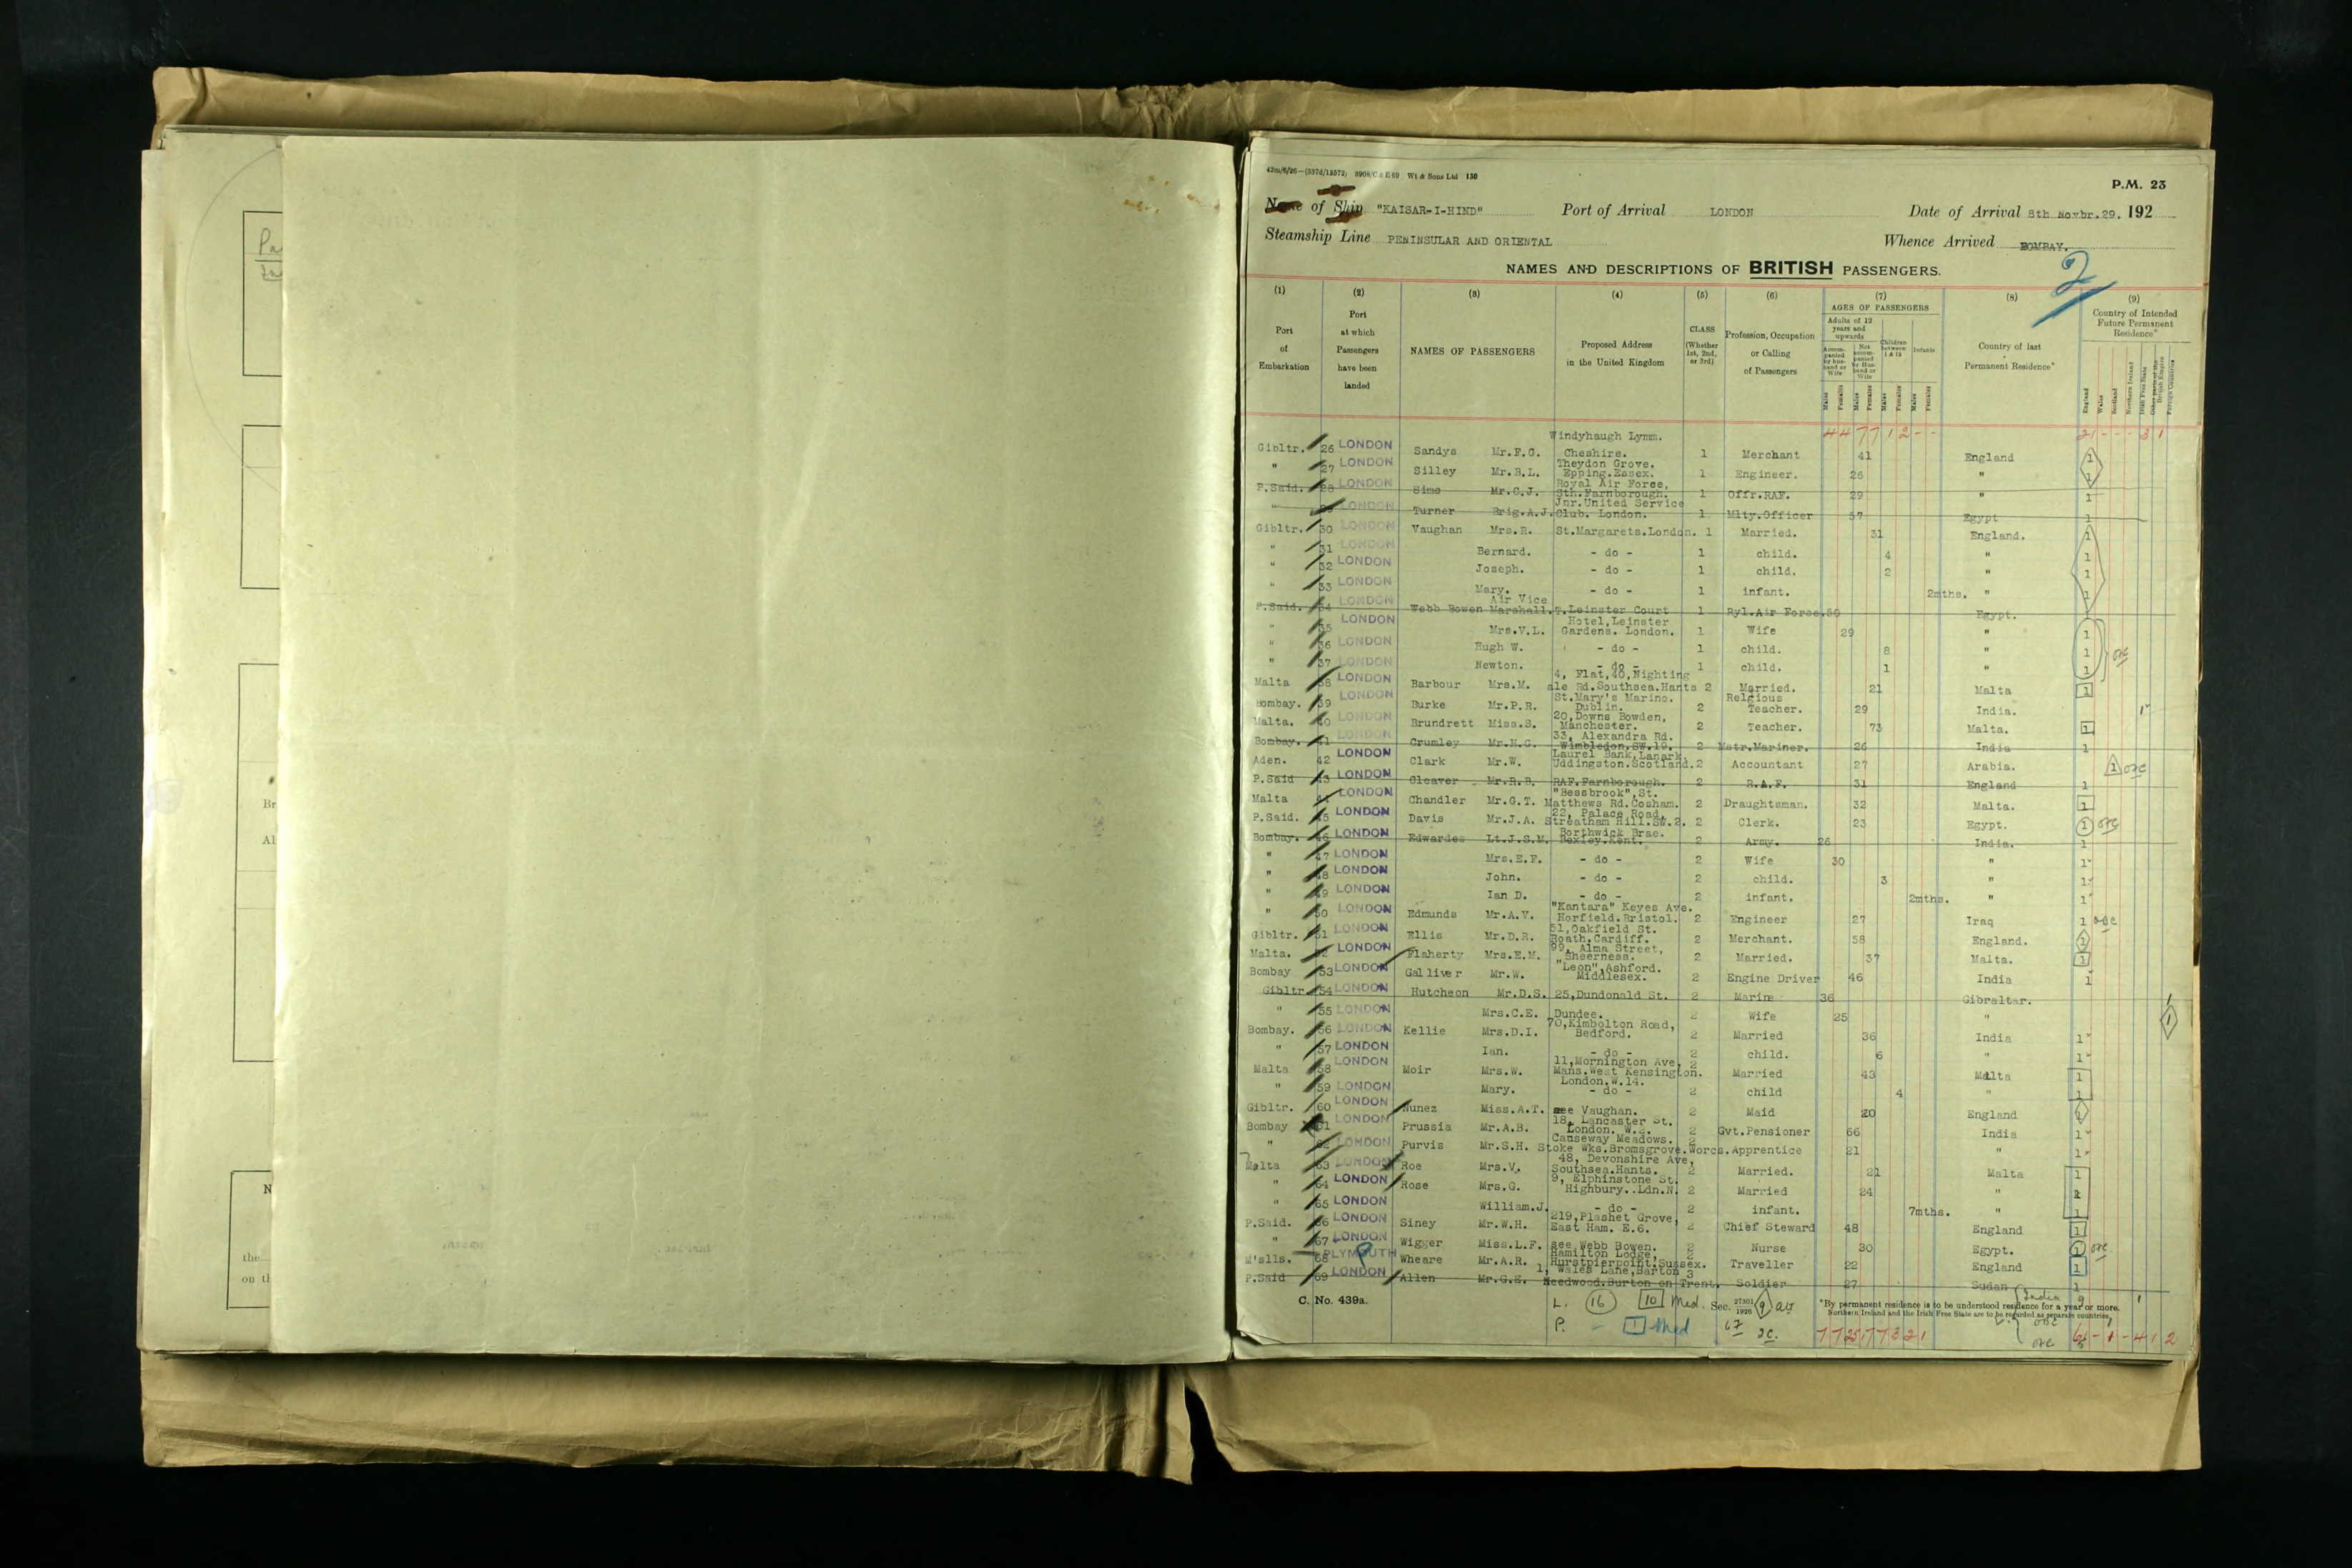 P.M. 23
Name of Ship "KAISAR-I-HIND" Port of Arrival LONDON Date of Arrival 8th Novbr.29. 192
Steamship Line PENINSULAR AND ORIENTAL Whence Arrived BOMBAY.
2
NAMES AND DESCRIPTIONS OF BRITISH PASSENGERS.
(1) (2) (3) (4) (5) (6) (7) (8) (9)
Port of Embarkation
Port at which Passengers have been landed
NAMES OF PASSENGERS
Proposed Address in the United Kingdom
CLASS (Whether 1st, 2nd, or 3rd)
Profession, Occupation or Calling of Passengers
AGES OF PASSENGERS
Adults of 12 years and upwards
Accompanied by husband or Wife
Not accompanied by Husband or Wife
Children between 1 & 12
Infants
Males Females Males Females Males Females Males Females
Country of last Permanent Residence*
Country of Intended Future Permanent Residence*
England Wales Scotland Northern Ireland Irish Free State Other parts of the British Empire Foreign Countries
Gibltr. 26 LONDON Sandys Mr.F.G. Windyhaugh Lymm. Cheshire. 1 Merchant 41 England 1
" 27 LONDON Silley Mr.B.L. Theydon Grove. Epping.Essex. 1 Engineer. 26 " 1
P.Said. 28 LONDON Sime Mr.C.J. Royal Air Force, Sth.Farnborough. 1 Offr.RAF. 29 " 1
" 29 LONDON Turner Brig.A.J. Jnr.United Service Club. London. 1 Mlty.Officer 57 Egypt 1
Gibltr. 30 LONDON Vaughan Mrs.R. St.Margarets.London. 1 Married. 31 England. 1
" 31 LONDON Bernard. - do - 1 child. 4 " 1
" 32 LONDON Joseph. - do - 1 child. 2 " 1
" 33 LONDON Mary. - do - 1 infant. 2mths. " 1
P.Said. 34 LONDON Webb Bowen Air Vice Marshall.T. Leinster Court 1 Ryl.Air Force. 50 Egypt.
" 35 LONDON Mrs.V.L. Hotel,Leinster Gardens. London. 1 Wife 29 " 1
" 36 LONDON Hugh W. - do - 1 child. 8 " 1
" 37 LONDON Newton. - do - 1 child. 1 " 1
Malta 38 LONDON Barbour Mrs.M. 4, Flat,40,Nighting ale Rd.Southsea.Hants 2 Married. 21 Malta 1
Bombay. 39 LONDON Burke Mr.P.R. St.Mary's Marino. Dublin. 2 Relgious Teacher. 29 India. 1
Malta. 40 LONDON Brundrett Miss.S. 20,Downs Bowden, Manchester. 2 Teacher. 73 Malta. 1
Bombay. 41 LONDON Crumley Mr.H.G. 33, Alexandra Rd. Wimbledon.SW.19. 2 Mstr.Mariner. 26 India 1
Aden. 42 LONDON Clark Mr.W. Laurel Bank,Lanark, Uddingston.Scotland. 2 Accountant 27 Arabia. 1
P.Said 43 LONDON Cleaver Mr.R.B. RAF.Farnborough. 2 R.A.F. 31 England 1
Malta 44 LONDON Chandler Mr.G.T. "Bessbrook",St. Matthews Rd.Cosham. 2 Draughtsman. 32 Malta. 1
P.Said. 45 LONDON Davis Mr.J.A. 22, Palace Road, Streatham Hill.SW.2. 2 Clerk. 23 Egypt. 1
Bombay. 46 LONDON Edwardes Lt.J.S.M. Borthwick Brae. Bexley.Kent. 2 Army. 26 India. 1
" 47 LONDON Mrs.E.F. - do - 2 Wife 30 " 1
" 48 LONDON John. - do - 2 child. 3 " 1
" 49 LONDON Ian D. - do - 2 infant. 2mths. " 1
" 50 LONDON Edmunds Mr.A.V. "Kantara" Keyes Ave. Horfield.Bristol. 2 Engineer 27 Iraq 1
Gibltr. 51 LONDON Ellis Mr.D.R. 51,Oakfield St. Roath.Cardiff. 2 Merchant. 58 England. 1
Malta. 52 LONDON Flaherty Mrs.E.M. 99, Alma Street, Sheerness. 2 Married. 37 Malta. 1
Bombay 53 LONDON Galliver Mr.W. "Leon",Ashford. Middlesex. 2 Engine Driver 46 India 1
Gibltr 54 LONDON Hutcheon Mr.D.S. 25,Dundonald St. 2 Marine 36 Gibraltar. 1
" 55 LONDON Mrs.C.E. Dundee. 2 Wife 25 " 1
Bombay. 56 LONDON Kellie Mrs.D.I. 70,Kimbolton Road, Bedford. 2 Married 36 India 1
" 57 LONDON Ian. - do - 2 child. 6 " 1
Malta 58 LONDON Moir Mrs.W. 11,Mornington Ave, Mans.West Kensington. London.W.14. 2 Married 43 Malta 1
" 59 LONDON Mary. - do - 2 child 4 " 1
Gibltr. 60 LONDON Nunez Miss.A.T. see Vaughan. 2 Maid 20 England 1
Bombay 61 LONDON Prussia Mr.A.B. 18, Lancaster St. London. W.2. 2 Gvt.Pensioner 66 India 1
" 62 LONDON Purvis Mr.S.H. Causeway Meadows. Stoke Wks.Bromsgrove.Worcs. 2 Apprentice 21 " 1
Malta 63 LONDON Roe Mrs.V. 48, Devonshire Ave, Southsea.Hants. 2 Married. 21 Malta 1
" 64 LONDON Rose Mrs.G. 9, Elphinstone St. Highbury..Ldn.N. 2 Married 24 " 1
" 65 LONDON William.J. - do - 2 infant. 7mths. " 1
P.Said. 66 LONDON Siney Mr.W.H. 219,Plashet Grove, East Ham. E.6. 2 Chief Steward 48 England 1
" 67 LONDON Wigger Miss.L.F. see Webb Bowen. 2 Nurse 30 Egypt. 1
M'slls. 68 PLYMOUTH Wheare Mr.A.R. Hamilton Lodge, Hurstpierpoint.Sussex. 2 Traveller 22 England 1
P.Said 69 LONDON Allen Mr.G.E. 1, Wales Lane,Barton Needwood.Burton on Trent. 3 Soldier 27 Sudan 1
C. No. 439a.
L. 16 10 Med. Sec. 27301/1926 9
P. - 1 Med
India 9 1
*By permanent residence is to be understood residence for a year or more.
Northern Ireland and the Irish Free State are to be regarded as separate countries.